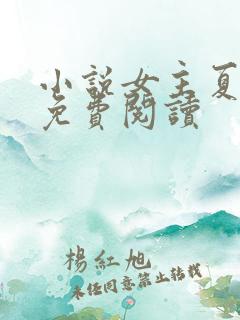 小説女主夏
免費閱讀
楊紅旭
未經同意禁止轉載